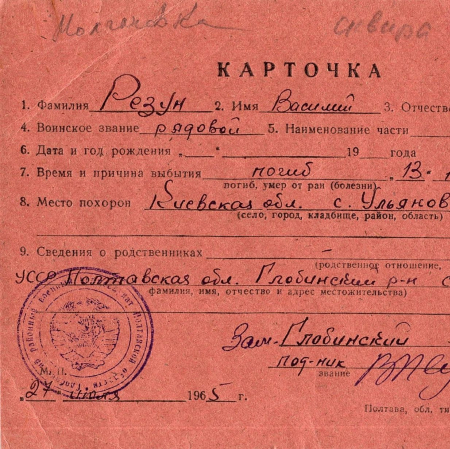 сквира
КАРТОЧКА
1. Фамилия Резун 2. Имя Василий 3. Отчество
4. Воинское звание рядовой 5. Наименование части
6. Дата и год рождения 19 года
7. Время и причина выбытия погиб 13
погиб, умер от ран (болезни)
8. Место похорон Киевская обл. с. Ульянов
(село, город, кладбище, район, область)
9. Сведения о родственниках
(родственное отношение,
УССР Полтавская обл. Глобинский р-н с
фамилия, имя, отчество и адрес местожительства)
Зам. Глобинский
под-ник
звание
М. П.
27 июля 1965 г.
Полтава, обл. ти